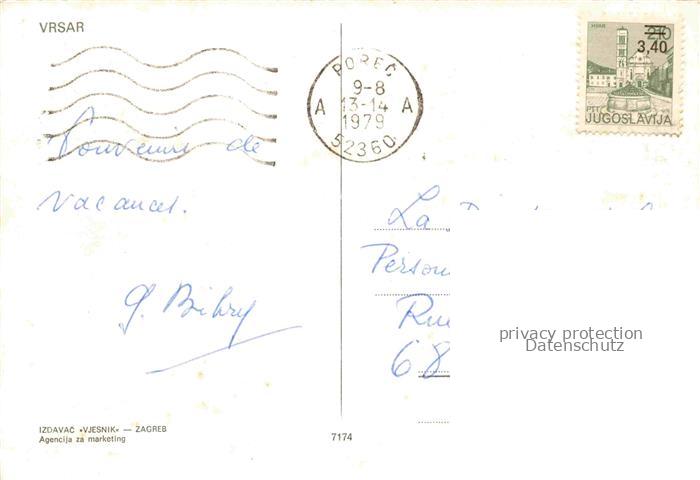 VRSAR
POREČ
9-8
A 13-14 A
1979
52360
HVAR
2,10
3,40
PTT
JUGOSLAVIJA
Souvenir de
vacances.
La
Person
Rue
68
privacy protection
Datenschutz
IZDAVAČ »VJESNIK« — ZAGREB
Agencija za marketing
7174